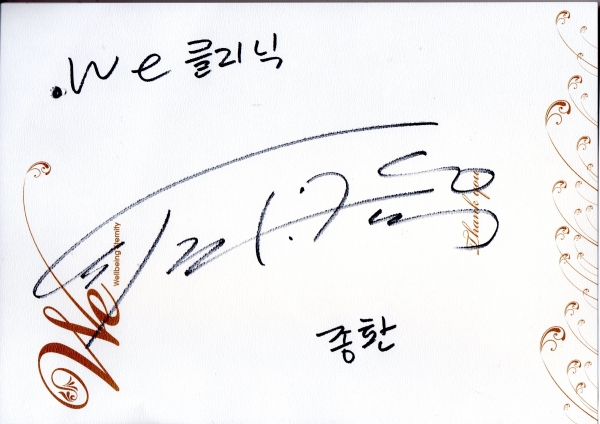 .We 클리닉
We
Wellbeing Eternity
Thank you
종환